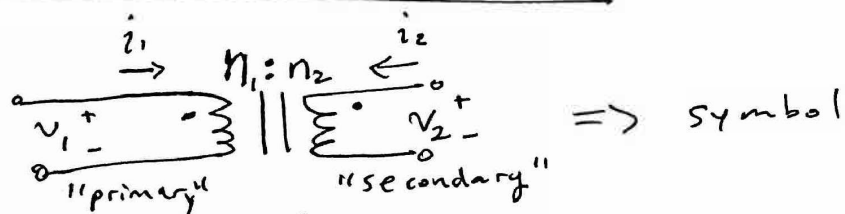 i₁ i₂
n₁ : n₂
v₁ + - v₂ + - => symbol
"primary" "secondary"